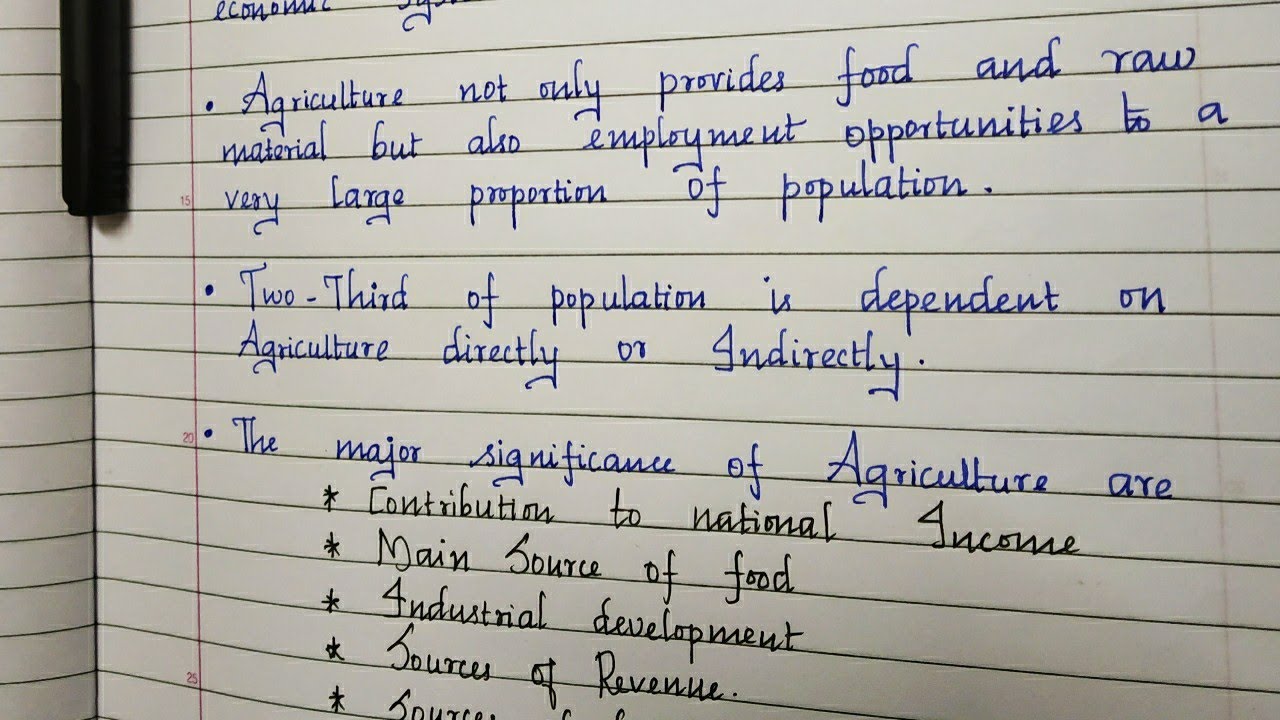 economic
• Agriculture not only provides food and raw
material but also employment opportunities to a
very large proportion of population.
15
• Two-Third of population is dependent on
Agriculture directly or Indirectly.
20
• The major significance of Agriculture are
* Contribution to national Income
* Main Source of food
* Industrial development
* Sources of Revenue.
25
* Sources